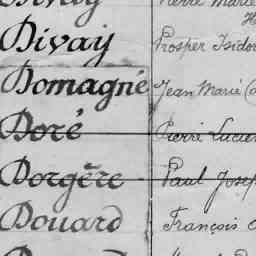 Divay Prosper Isidor
Domagné Jean Marie
Doré Pierre Lucien
Dorgère Paul Josep
Douard François